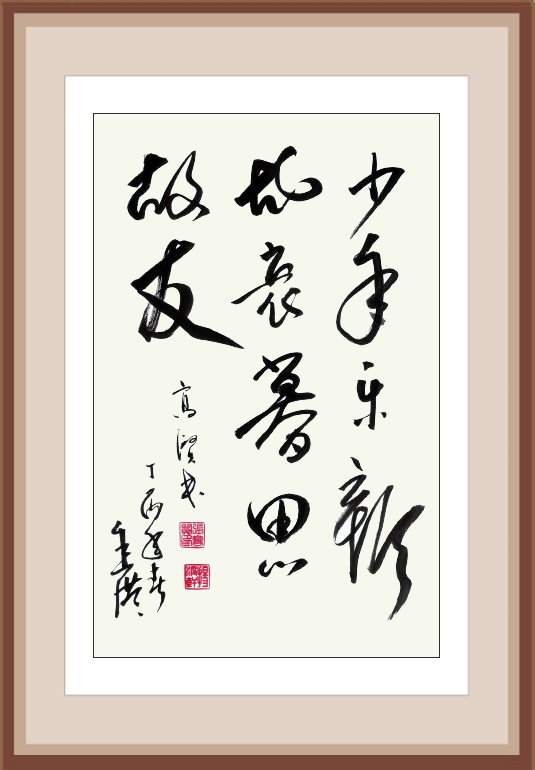 少年乐新
知衰暮思
故友
高贤
丁酉年春